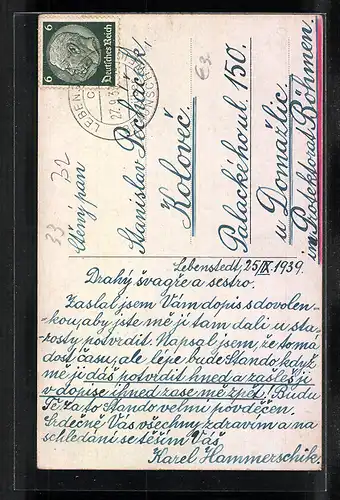 6 Deutsches Reich 6
Ctěný pan
Stanislav
Kolovič
Palackéhoul. 150.
u Domažlic.
in Protektorat Böhmen.
Lebenstedt, 25/IX. 1939.
Drahý švagře a sestro.
Zaslal jsem Vám dopis s dovolen-
kou, aby jste mě jí tam dali u sta-
rosty potvrdit. Napsal jsem, že to má
dost času, ale lépe bude Stando, když
mě jí dáš potvrdit hned a zašleš jí
v dopise ihned zase mě zpět, Budu
Tě za to Stando velmi povděčen.
Srdečně Vás všechny zdravím a na
schledání se těším Vás
Karel Hammerschik.
33 32